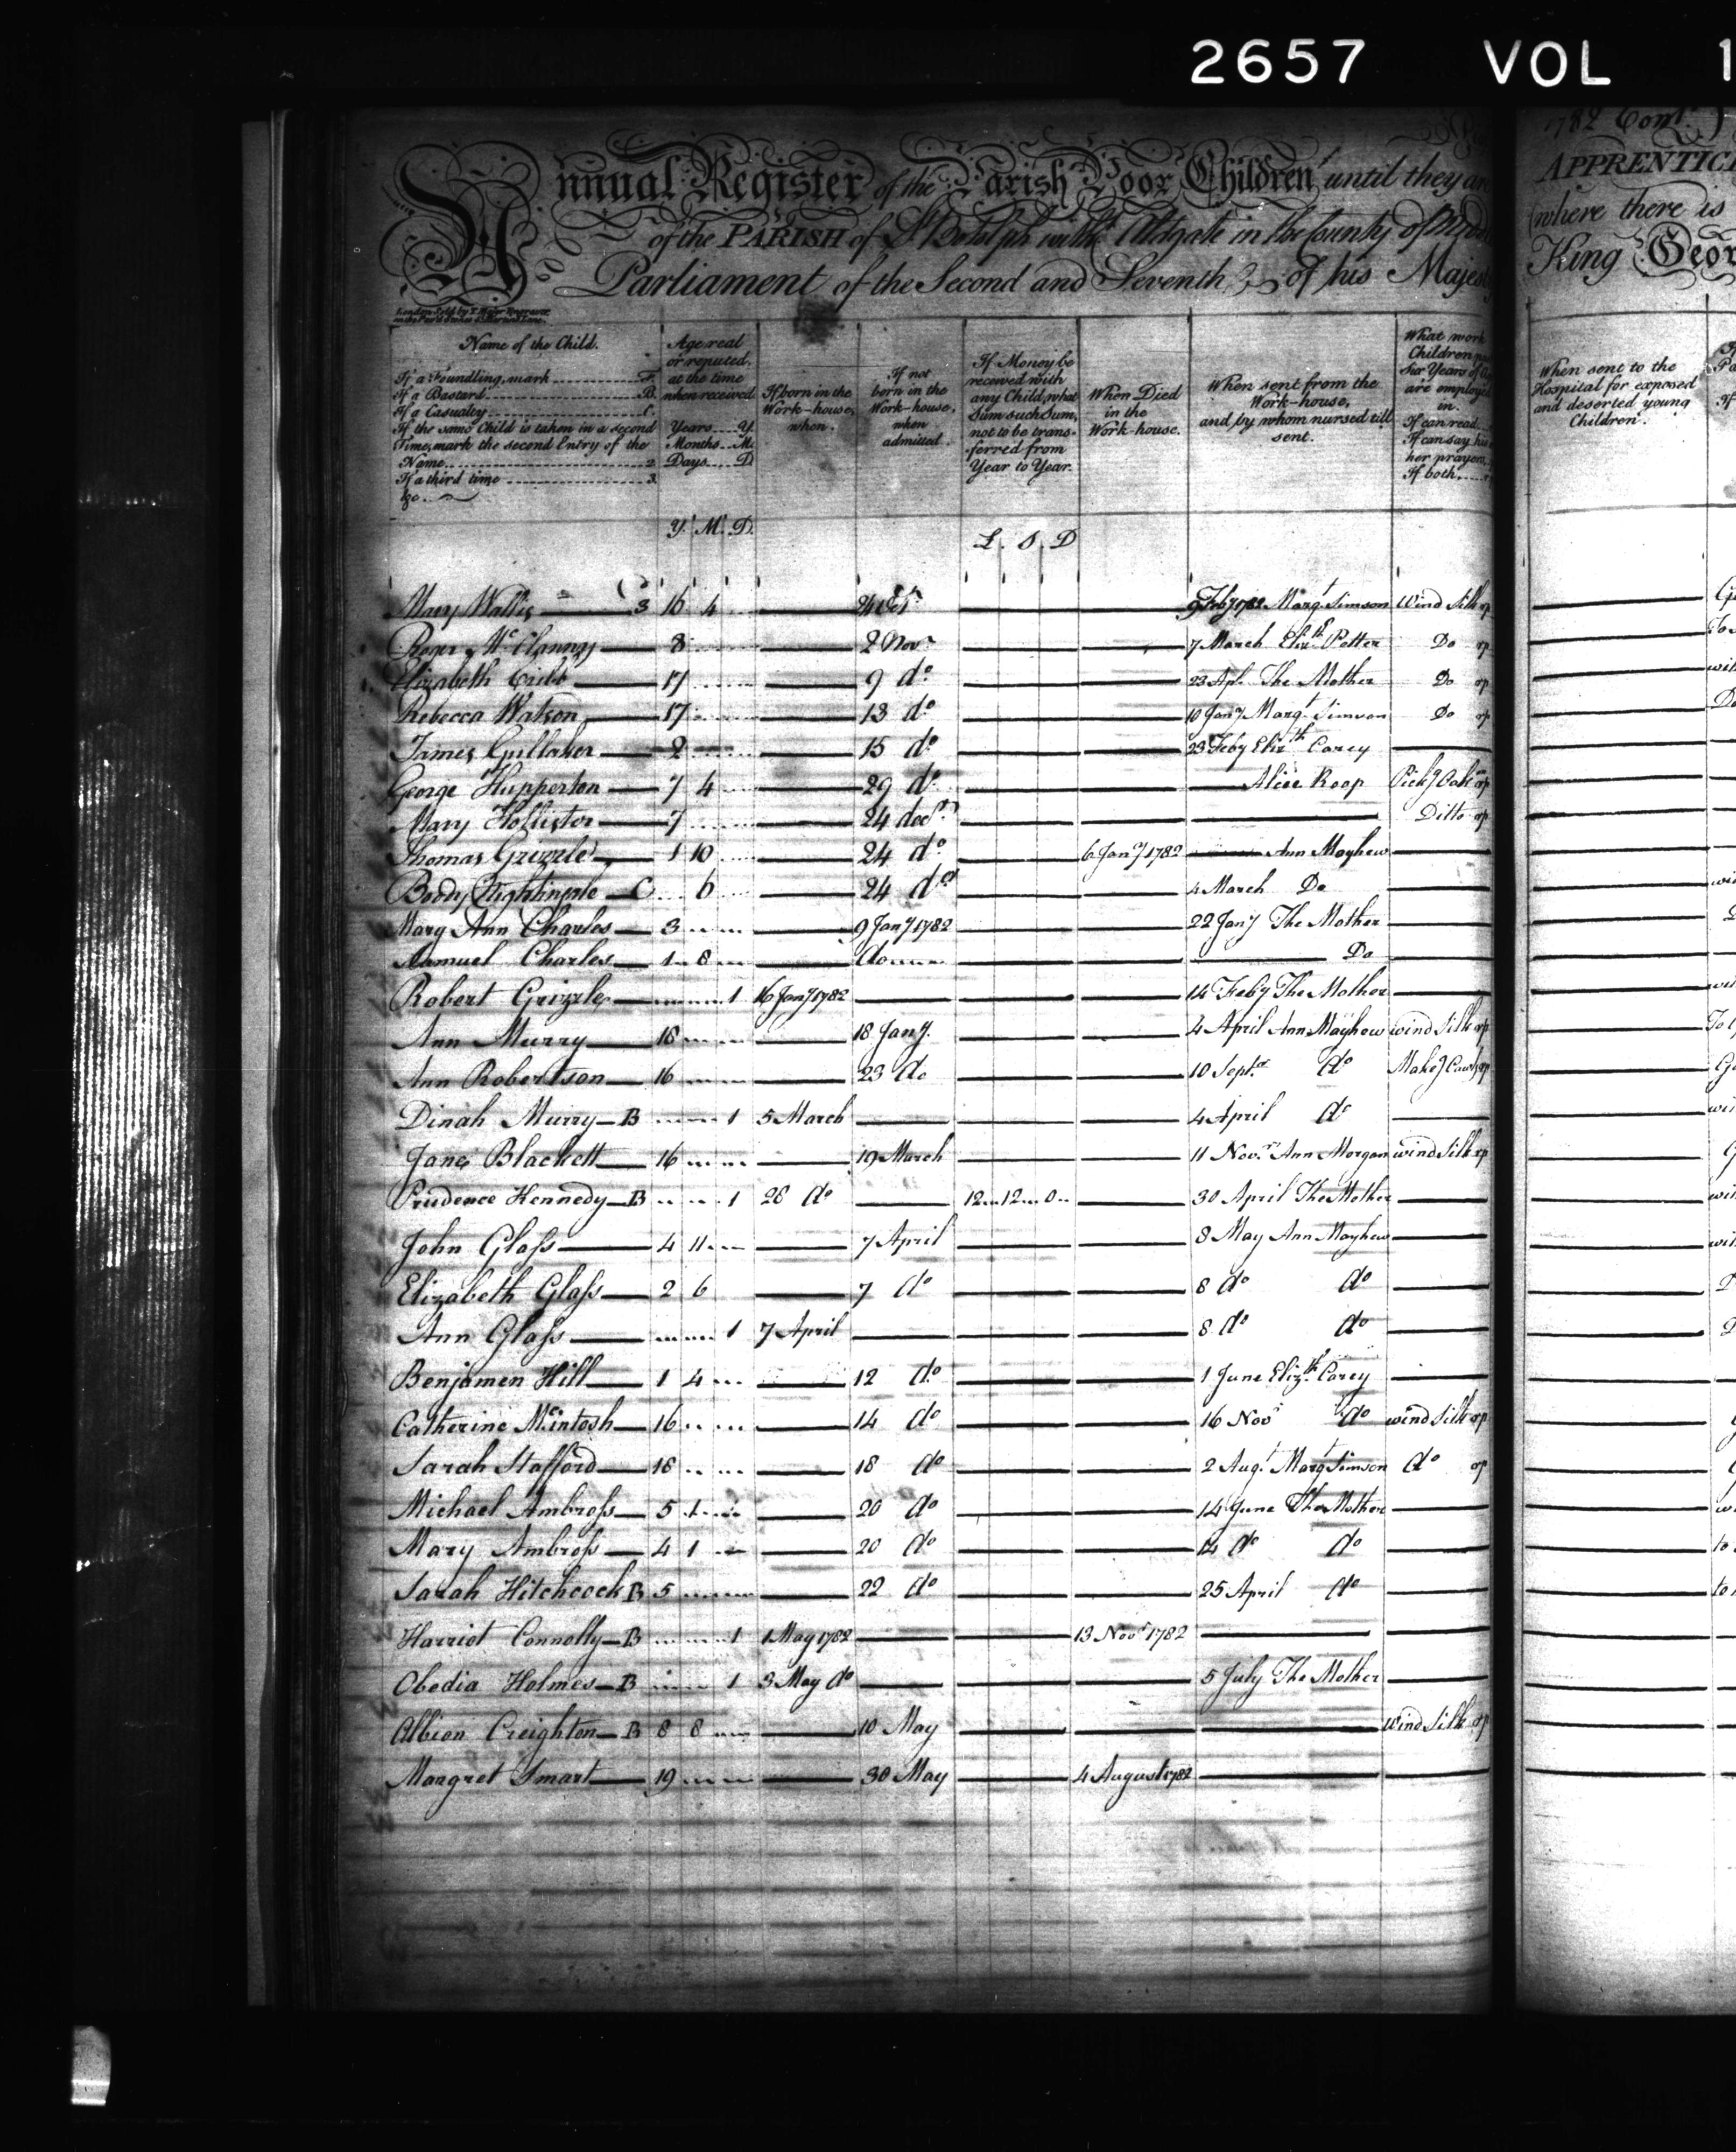 2657 VOL 1
Annual Register of the Parish Poor Children until they are
of the PARISH of St Botolph witht Aldgate in the County of Midd
Parliament of the Second and Seventh of his Majes
London Sold by
Name of the Child.
If a Foundling, mark F.
If a Bastard B.
If a Casualty C.
If the same Child is taken in a second
Time, mark the second Entry of the
Name 2.
If a third time 3.
&c.
Age real
or reputed,
at the time
when received
Years Y.
Months M.
Days D.
If born in the
Work-house,
when.
If not
born in the
Work-house,
when
admitted
If Money be
received with
any Child, what
Sum such Sum,
not to be trans-
ferred from
Year to Year.
When Died
in the
Work-house.
When sent from the
Work-house,
and by whom nursed till
sent.
What work
Children
Six Years of
are employ'd
in.
If can read
If can say his
her prayers
If both,
Y. M. D.
L. S. D
Mary Wallis 3 16 4 24 Octr 9 Feby 1782 Margt Simson Wind Silk rp
Roger 8 2 Novr 7 March Elizth Potter Do rp
Elizabeth Cribb 17 9 do 23 Apl The Mother Do rp
Rebecca Watson 17 13 do 10 Jany Margt Simson Do rp
James Gullaher 2 15 do 23 Feby Elizth Carey
George Hupperton 7 4 29 do Alice Roop Pickg Oakm rp
Mary Hollister 7 24 decr Ditto rp
Thomas Grizzle 1 10 24 do 6 Jany 1782 Ann Mayhew
Body Nightingale C 6 24 do 4 March Do
Mary Ann Charles 3 9 Jany 1782 22 Jany The Mother
Samuel Charles 1 8 do Do
Robert Grizzle 1 16 Jany 1782 14 Feby The Mother
Ann Murry 18 18 Jany 4 April Ann Mayhew wind Silk rp
Ann Robertson 16 23 do 10 Septr do Makeg rp
Dinah Murry B 1 5 March 4 April do
Jane Blackett 16 19 March 11 Novr Ann Morgan wind Silk rp
Prudence Kennedy B 1 28 do 12 12 0 30 April The Mother
John Glass 4 11 7 April 8 May Ann Mayhew
Elizabeth Glass 2 6 7 do 8 do do
Ann Glass 1 7 April 8 do do
Benjamen Hill 1 4 12 do 1 June Elizth Carey
Catherine McIntosh 16 14 do 16 Novr do wind Silk rp
Sarah Stafford 18 18 do 2 Augt Margt Simson do rp
Michael Ambross 5 1 20 do 14 June The Mother
Mary Ambross 4 1 20 do 14 do do
Sarah Hitchcock B 5 22 do 25 April do
Harriot Connolly B 1 1 May 1782 13 Novr 1782
Obedia Holmes B 1 3 May do 5 July The Mother
Albion Creighton B 8 8 10 May Wind Silk rp
Margret Smart 19 30 May 4 August 1782
1782 Cont
APPRENTIC
(where there is
King Geor
When sent to the
Hospital for exposed
and deserted young
Children.